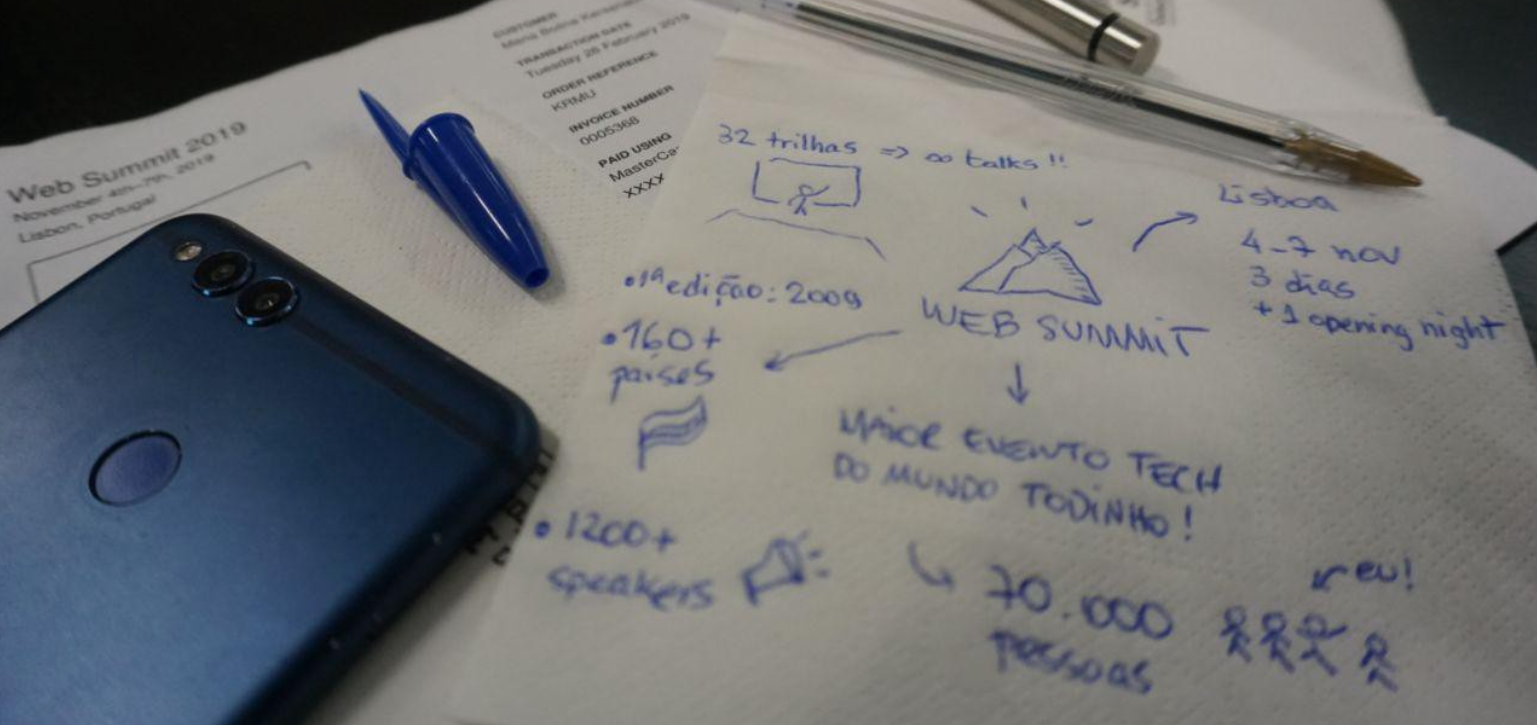 Web Summit 2019
November 4th-7th, 2019
Lisbon, Portugal
CUSTOMER
Maria
TRANSACTION DATE
Tuesday 26 February 2019
ORDER REFERENCE
KRMU
INVOICE NUMBER
0005368
PAID USING
XXXX
32 trilhas => ∞ talks !!
Lisboa
4-7 nov
3 dias
+ 1 opening night
WEB SUMMIT
• 1ª edição: 2009
• 160+
países
• 1200+
speakers
MAIOR EVENTO TECH
DO MUNDO TODINHO!
70.000
pessoas
eu!